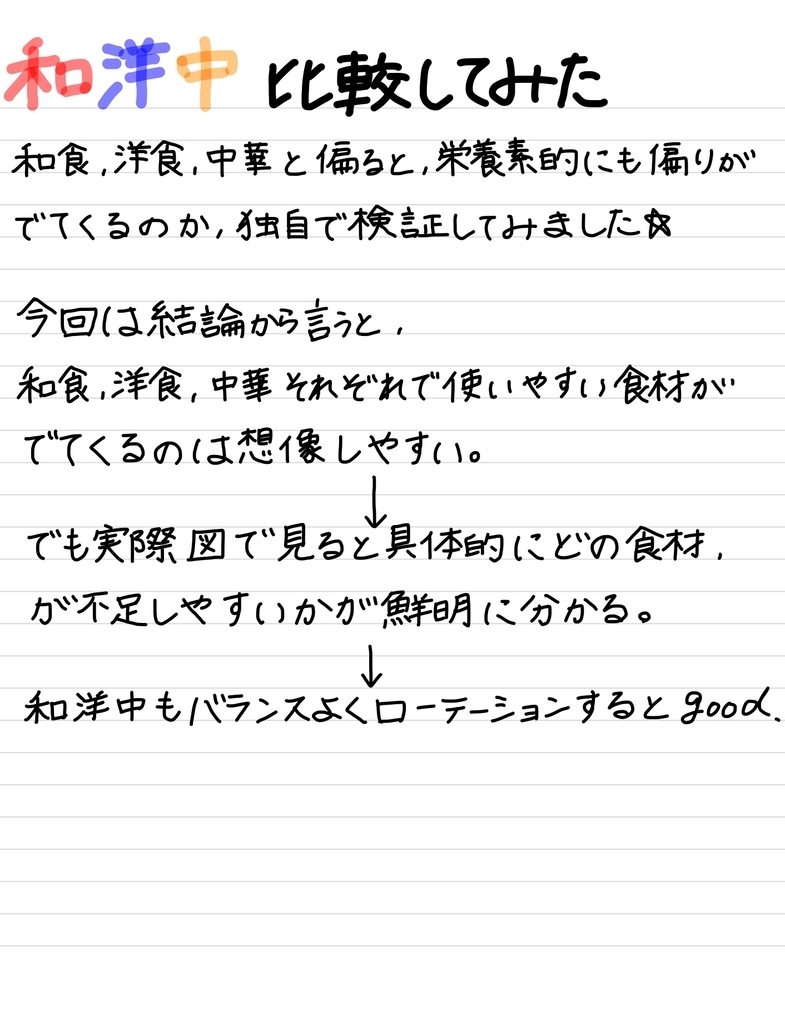 和洋中 比較してみた
和食,洋食,中華と偏ると,栄養素的にも偏りが
でてくるのか,独自で検証してみました☆
今回は結論から言うと,
和食,洋食,中華それぞれで使いやすい食材が
でてくるのは想像しやすい。
↓
でも実際図で見ると具体的にどの食材,
が不足しやすいかが鮮明に分かる。
↓
和洋中もバランスよくローテーションするとgood.